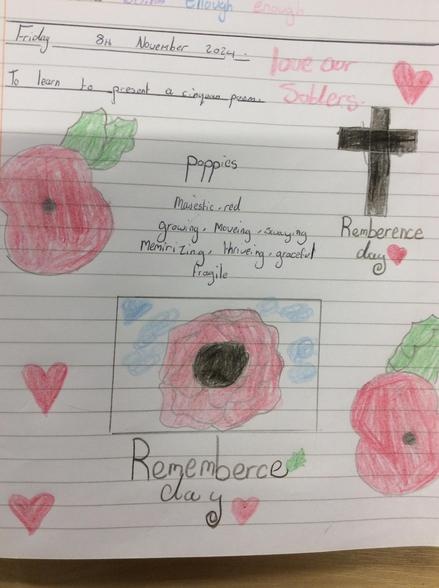 enough enough
Friday 8th November 2024.
love our
Soblers.
To learn to present a cinquan poem.
Poppies
Majestic, red
growing, Moveing, swaying
Memirizing, thriveing, graceful
fragile
Remberence
day
Rememberce
day